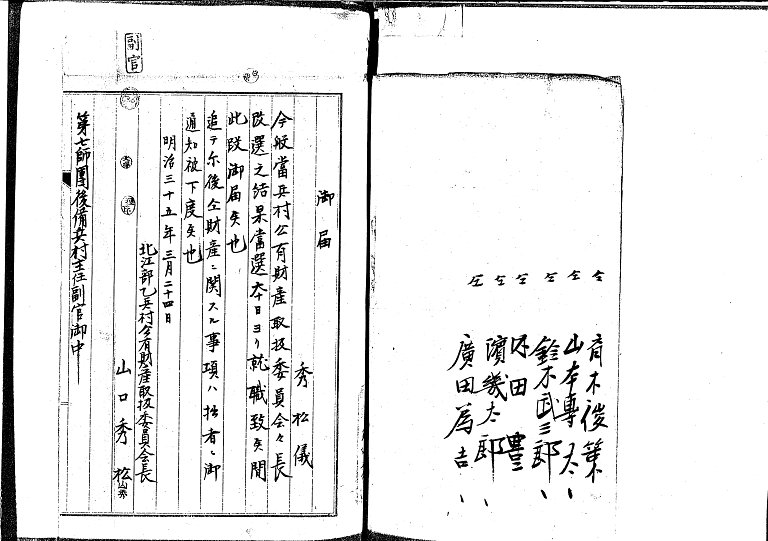 仝 育木俊策 〃
仝 山本専太 〃
仝 鈴木武三郎 〃
仝 田豊
仝 濱幾太郎 〃
仝 廣田為吉 〃
御届
秀松儀
今般當兵村公有財産取扱委員会々長
改選之結果當選本日ヨリ就職致候間
此段御届候也
追テ尓後仝財産ニ関スル事項ハ拙者ニ御
通知被下度候也
明治三十五年三月二十四日
北江部乙兵村公有財産取扱委員会長
山口秀松
第七師團後備兵村主任副官御中
副官